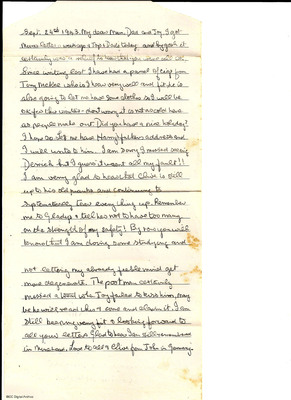 Sept. 24th 1943. My dear Mum, Dee and Ivy I got
Mums letter today and by gosh it
certainly was a relief to hear that you were all ok.
Since writing last I have had a parcel of cigs from
Tony McKee who is I hear very well and fit he is
also going to let me have some clothes so I will be
ok for this winter - dont worry it is not as cold here
as people make out. Did you have a nice holiday?
I hope so. Let me have Harry's address and
I will write to him. I am sorry I missed seeing
Derrick but I guess it wasnt all my fault!!
I am very glad to hear that Clive is still
up to his old pranks and continuing to
systematically tear everything up. Remember
me to Gladys & tell her not to have too many
on the strength of my safety! By now you will
know that I am doing some studying and
not letting my already feeble mind get
more degenerate. The postman certainly
missed a when Ivy failed to kiss him, may
be he will read this & come and claim it. I am
still keeping very fit & looking forward to
all your letters. Glad to hear Ian still
in . Love to all & Clive from John in Germany.
IBCC Digital Archive